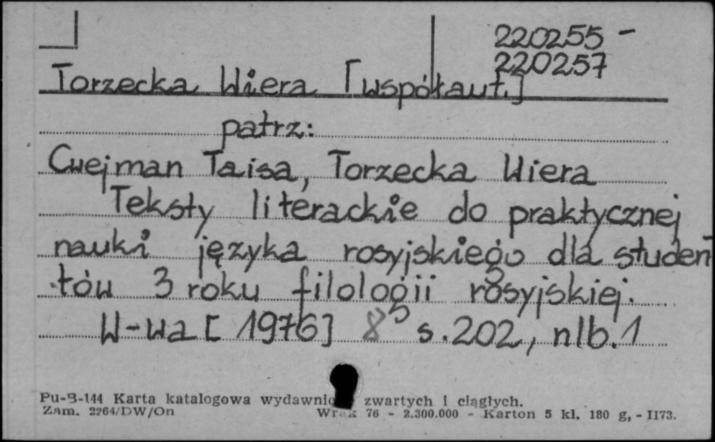 220255 -
220257
Torzecka Wiera [współaut.]
patrz:
Cwejman Taisa, Torzecka Wiera
Teksty literackie do praktycznej
nauki języka rosyjskiego dla studen
tów 3 roku filologii rosyjskiej.
W-wa [1976] 8° s. 202, nlb. 1
Pu-B-144 Karta katalogowa zwartych i ciągłych.
Zam. 2264/DW/On 76 - 2.300.000 - Karton 5 kl. 180 g, - 1173.